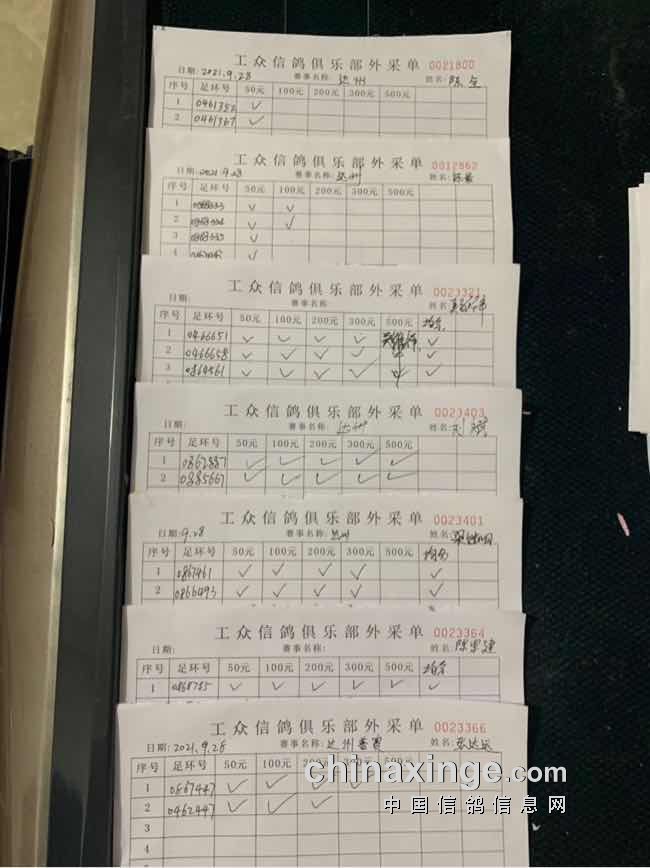 工众信鸽俱乐部外采单 0021800
日期: 2021.9.28 赛事名称: 达州 姓名: 陈全
序号 足环号 50元 100元 200元 300元 500元
1 0461352 ✓
2 0461367 ✓
工众信鸽俱乐部外采单 0012862
日期: 2021.9.28 赛事名称: 达州 姓名:
序号 足环号 50元 100元 200元 300元 500元
1 ✓ ✓
2 ✓ ✓
3 ✓
4 ✓
工众信鸽俱乐部外采单 0023321
日期: 赛事名称: 姓名
序号 足环号 50元 100元 200元 300元 500元
1 0466651 ✓ ✓ ✓ ✓ ✓
2 0466658 ✓ ✓ ✓ ✓ ✓
3 0864561 ✓ ✓ ✓ ✓ ✓
工众信鸽俱乐部外采单 0023403
日期: 赛事名称: 达州 姓名: 刘斌
序号 足环号 50元 100元 200元 300元 500元
1 0862887 ✓ ✓ ✓ ✓ ✓
2 0885667 ✓ ✓ ✓ ✓ ✓
工众信鸽俱乐部外采单 0023401
日期: 9.28 赛事名称: 达州 姓名:
序号 足环号 50元 100元 200元 300元 500元
1 0867461 ✓ ✓ ✓ ✓ ✓
2 0866493 ✓ ✓ ✓ ✓ ✓
工众信鸽俱乐部外采单 0023364
日期: 赛事名称: 姓名:
序号 足环号 50元 100元 200元 300元 500元
1 0868785 ✓ ✓ ✓ ✓ ✓ ✓
工众信鸽俱乐部外采单 0023366
日期: 2021.9.28 赛事名称: 达州 姓名: 张达运
序号 足环号 50元 100元 200元 300元 500元
1 0867447 ✓ ✓ ✓
2 0462447 ✓ ✓ ✓
3
4
chinaxinge.com
中国信鸽信息网